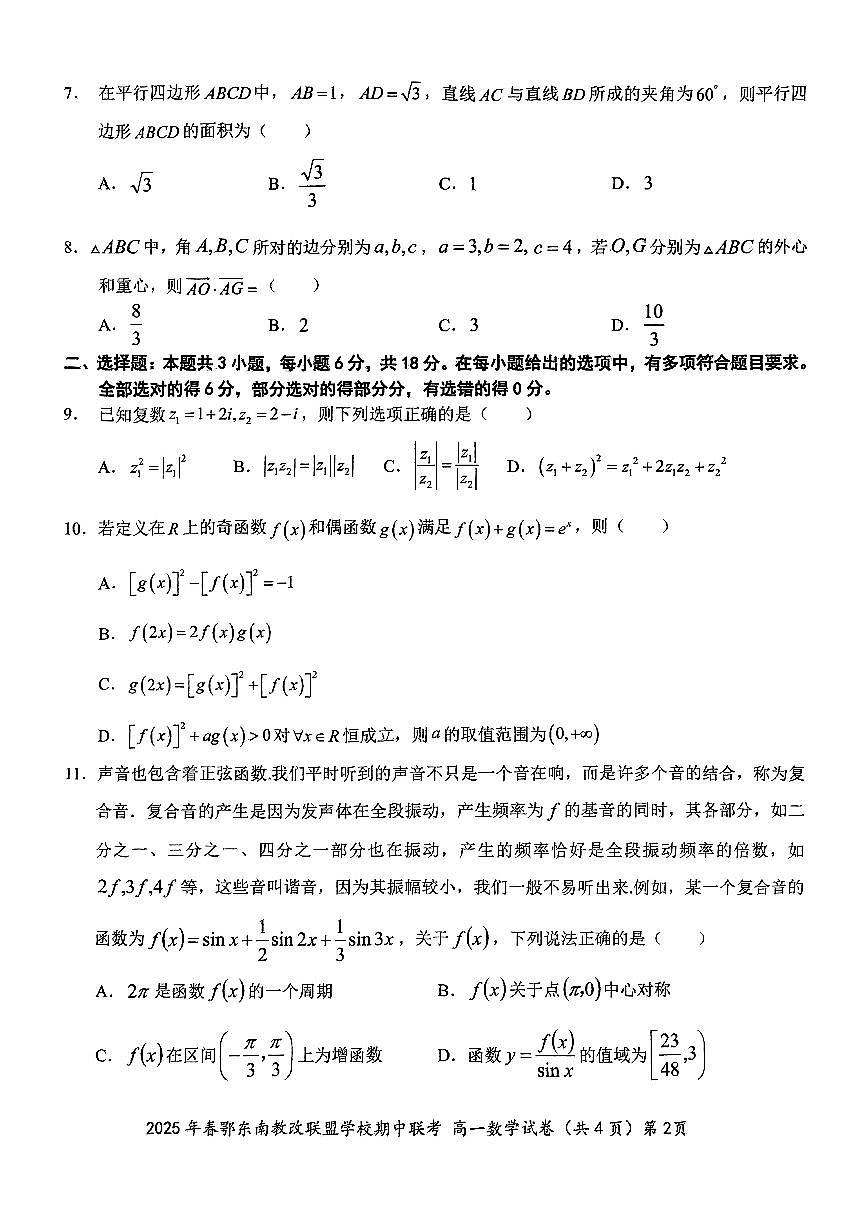 7. 在平行四边形 ABCD 中，AB=1，AD=√3，直线 AC 与直线 BD 所成的夹角为 60°，则平行四
边形 ABCD 的面积为（　　）
A. √3　B. √3/3　C. 1　D. 3
8. △ABC 中，角 A,B,C 所对的边分别为 a,b,c，a=3,b=2, c=4，若 O,G 分别为 △ABC 的外心
和重心，则 \overrightarrow{AO}·\overrightarrow{AG}=（　　）
A. 8/3　B. 2　C. 3　D. 10/3
二、选择题：本题共 3 小题，每小题 6 分，共 18 分。在每小题给出的选项中，有多项符合题目要求。
全部选对的得 6 分，部分选对的得部分分，有选错的得 0 分。
9. 已知复数 z₁=1+2i,z₂=2−i，则下列选项正确的是（　　）
A. z₁²=|z₁|²　B. |z₁z₂|=|z₁||z₂|　C. |z₁/z₂|=|z₁|/|z₂|　D. (z₁+z₂)²=z₁²+2z₁z₂+z₂²
10. 若定义在 R 上的奇函数 f(x) 和偶函数 g(x) 满足 f(x)+g(x)=eˣ，则（　　）
A. [g(x)]²−[f(x)]²=−1
B. f(2x)=2f(x)g(x)
C. g(2x)=[g(x)]²+[f(x)]²
D. [f(x)]²+ag(x)>0 对 ∀x∈R 恒成立，则 a 的取值范围为 (0,+∞)
11. 声音也包含着正弦函数.我们平时听到的声音不只是一个音在响，而是许多个音的结合，称为复
合音．复合音的产生是因为发声体在全段振动，产生频率为 f 的基音的同时，其各部分，如二
分之一、三分之一、四分之一部分也在振动，产生的频率恰好是全段振动频率的倍数，如
2f,3f,4f 等，这些音叫谐音，因为其振幅较小，我们一般不易听出来.例如，某一个复合音的
函数为 f(x)=sin x+1/2 sin 2x+1/3 sin 3x，关于 f(x)，下列说法正确的是（　　）
A. 2π 是函数 f(x) 的一个周期　B. f(x) 关于点 (π,0) 中心对称
C. f(x) 在区间 (−π/3,π/3) 上为增函数　D. 函数 y=f(x)/sin x 的值域为 [23/48,3)
2025 年春鄂东南教改联盟学校期中联考 高一数学试卷（共 4 页）第 2页